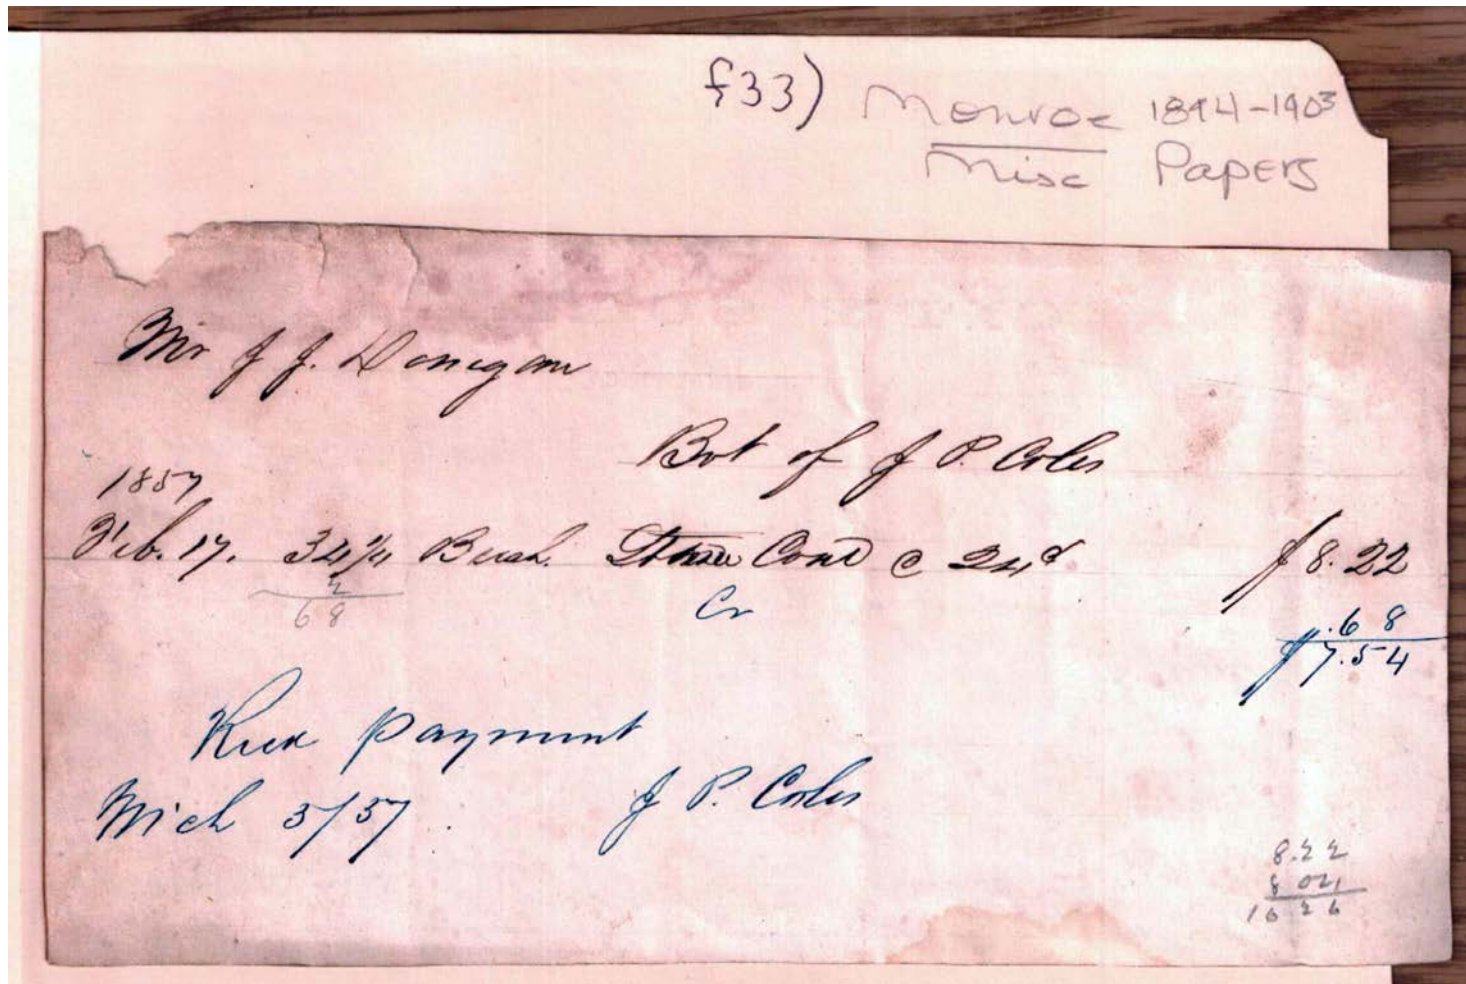 f33) Monroe 1894-1903
Misc Papers
Mr J J. Donegan
Bot of J P. Coles
1857
Feb. 17. 34 1/4 Bush. Stone Coal @ 24¢ $8.22
2
68
Cr .68
$7.54
Recd payment
Mich 3/57. J P. Coles
8.22
8 04
16 26